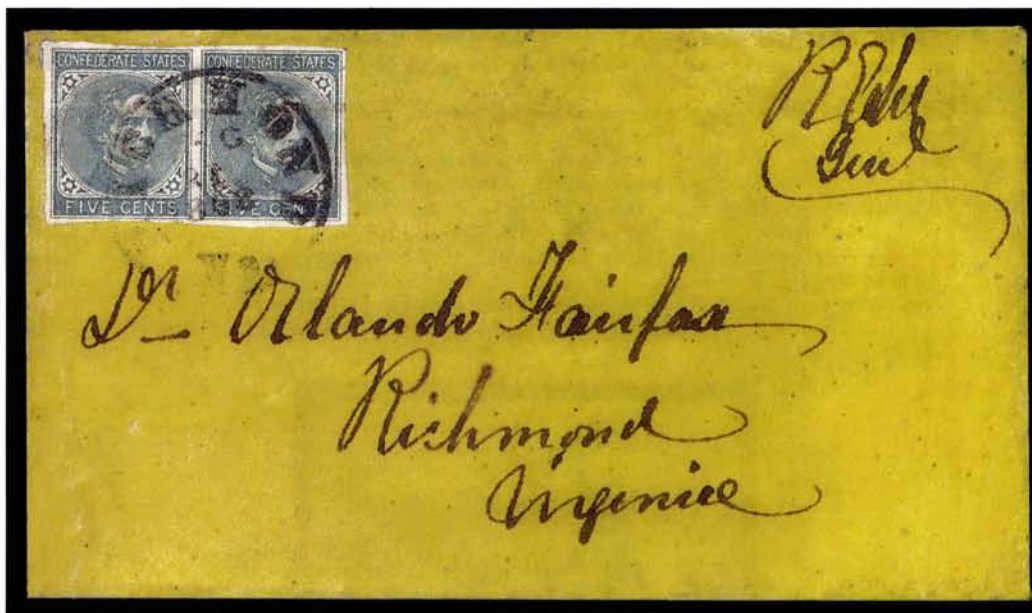 CONFEDERATE STATES CONFEDERATE STATES
FIVE CENTS FIVE CEN
Genl
Dr Orlando Fairfax
Richmond
Virginia